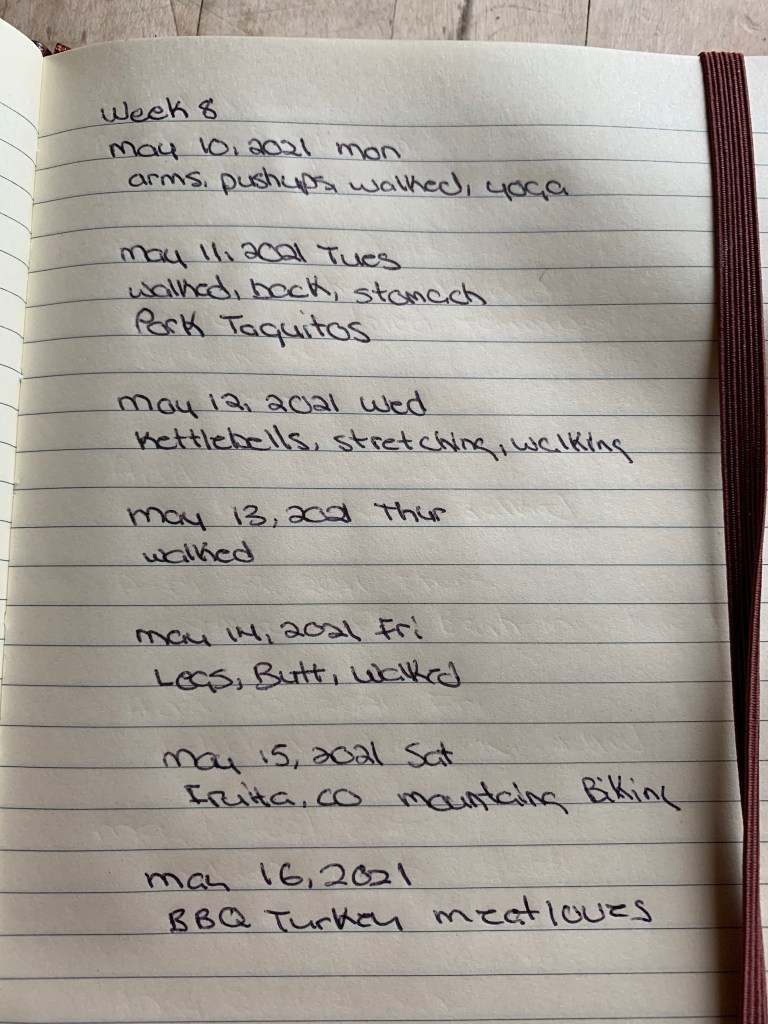 Week 8
may 10, 2021 mon
arms, pushups, walked, yoga
may 11, 2021 Tues
walked, back, stomach
Pork Taquitos
may 12, 2021 Wed
kettlebells, stretching, walking
may 13, 2021 Thur
walked
may 14, 2021 Fri
Legs, Butt, Walked
may 15, 2021 Sat
Fruita, CO mountaing Biking
may 16, 2021
BBQ Turkey meatloves